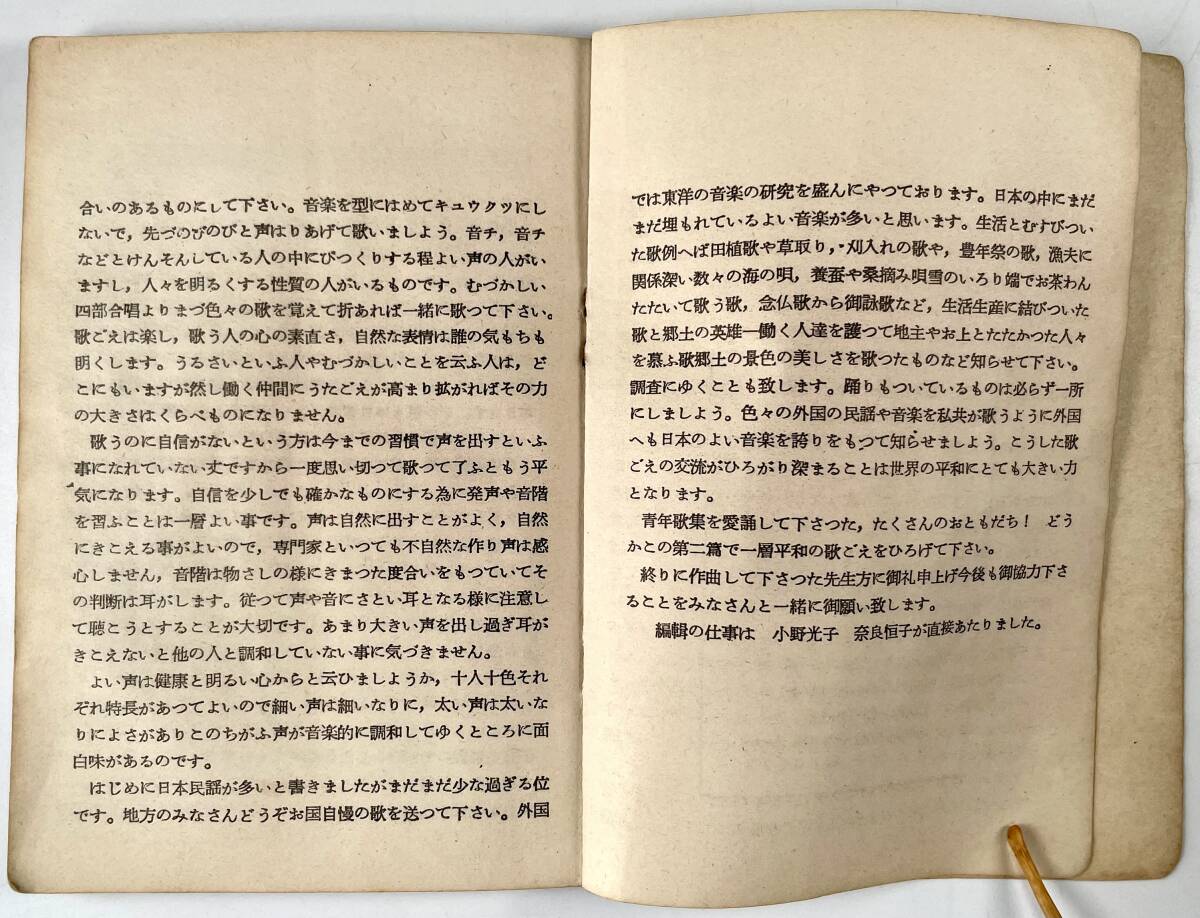 合いのあるものにして下さい。音楽を型にはめてキュウクツにし
ないで，先づのびのびと声はりあげて歌いましよう。音チ，音チ
などとけんそんしている人の中にびつくりする程よい声の人がい
ますし，人々を明るくする性質の人がいるものです。むづかしい
四部合唱よりまづ色々の歌を覚えて折あれば一緒に歌つて下さい。
歌ごえは楽し，歌う人の心の素直さ，自然な表情は誰の気もちも
明くします。うるさいといふ人やむづかしいことを云ふ人は，ど
こにもいますが然し働く仲間にうたごえが高まり拡がればその力
の大きさはくらべものになりません。
歌うのに自信がないという方は今までの習慣で声を出すといふ
事になれていない丈ですから一度思い切つて歌つて了ふともう平
気になります。自信を少しでも確かなものにする為に発声や音階
を習ふことは一層よい事です。声は自然に出すことがよく，自然
にきこえる事がよいので，専門家といつても不自然な作り声は感
心しません，音階は物さしの様にきまつた度合いをもつていてそ
の判断は耳がします。従つて声や音にさとい耳となる様に注意し
て聴こうとすることが大切です。あまり大きい声を出し過ぎ耳が
きこえないと他の人と調和していない事に気づきません。
よい声は健康と明るい心からと云ひましようか，十人十色それ
ぞれ特長があつてよいので細い声は細いなりに，太い声は太いな
りによさがありこのちがふ声が音楽的に調和してゆくところに面
白味があるのです。
はじめに日本民謡が多いと書きましたがまだまだ少な過ぎる位
です。地方のみなさんどうぞお国自慢の歌を送つて下さい。外国
では東洋の音楽の研究を盛んにやつております。日本の中にまだ
まだ埋もれているよい音楽が多いと思います。生活とむすびつい
た歌例へば田植歌や草取り，刈入れの歌や，豊年祭の歌，漁夫に
関係深い数々の海の唄，養蚕や桑摘み唄雪のいろり端でお茶わん
たたいて歌う歌，念仏歌から御詠歌など，生活生産に結びついた
歌と郷土の英雄一働く人達を護つて地主やお上とたたかつた人々
を慕ふ歌郷土の景色の美しさを歌つたものなど知らせて下さい。
調査にゆくことも致します。踊りもついているものは必らず一所
にしましよう。色々の外国の民謡や音楽を私共が歌うように外国
へも日本のよい音楽を誇りをもつて知らせましよう。こうした歌
ごえの交流がひろがり深まることは世界の平和にとても大きい力
となります。
青年歌集を愛誦して下さつた，たくさんのおともだち！　どう
かこの第二篇で一層平和の歌ごえをひろげて下さい。
終りに作曲して下さつた先生方に御礼申上げ今後も御協力下さ
ることをみなさんと一緒に御願い致します。
編輯の仕事は　小野光子　奈良恒子が直接あたりました。